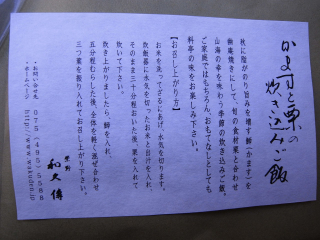 かますと栗の
炊き込みご飯
秋に脂がのり旨みを増す鰤（かます）を
幽庵焼きにして、旬の食材栗と合わせ
山海の幸を味わう季節の炊き込みご飯。
ご家庭ではもちろん、おもてなしとしても
料亭の味をお楽しみ下さい。
【お召し上がり方】
お米を洗ってざるにあげ、水気を切ります。
炊飯器に水気を切ったお米と出汁を入れ、
そのまま三十分程おいた後、栗を入れて
炊いて下さい。
炊き上がりましたら、鰤を入れ
五分程むらした後、全体を軽く混ぜ合わせ
三つ葉を振り入れてお召し上がり下さい。
紫野 和久傳
・お問い合せ先 075(495)5588
・ホームページ http://www.wakuden.jp